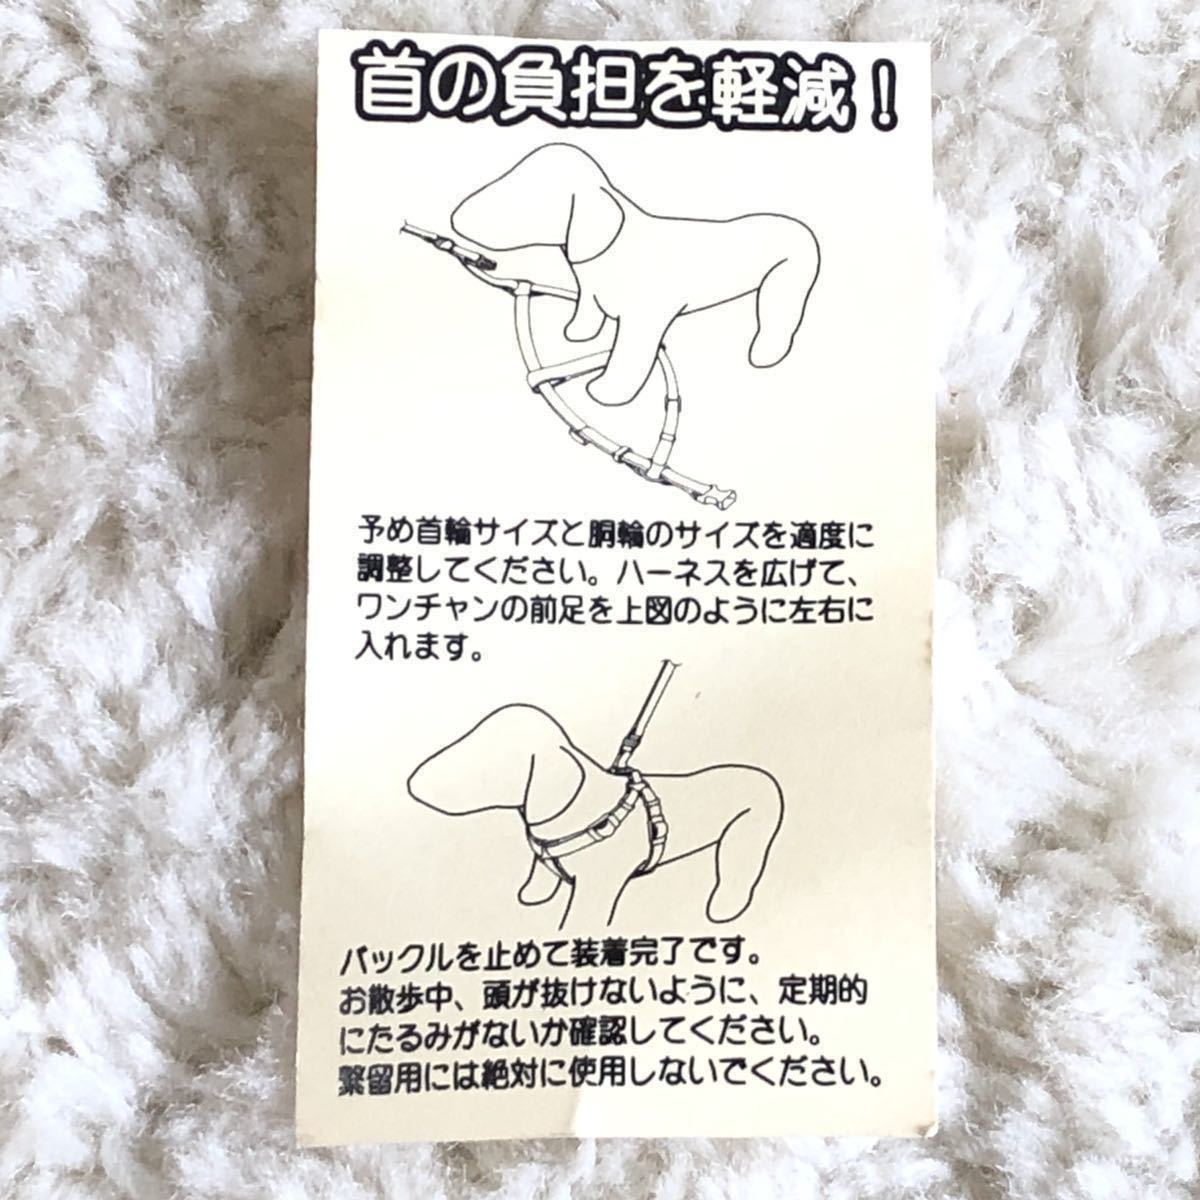 首の負担を軽減！
予め首輪サイズと胴輪のサイズを適度に
調整してください。ハーネスを広げて、
ワンチャンの前足を上図のように左右に
入れます。
バックルを止めて装着完了です。
お散歩中、頭が抜けないように、定期的
にたるみがないか確認してください。
繋留用には絶対に使用しないでください。